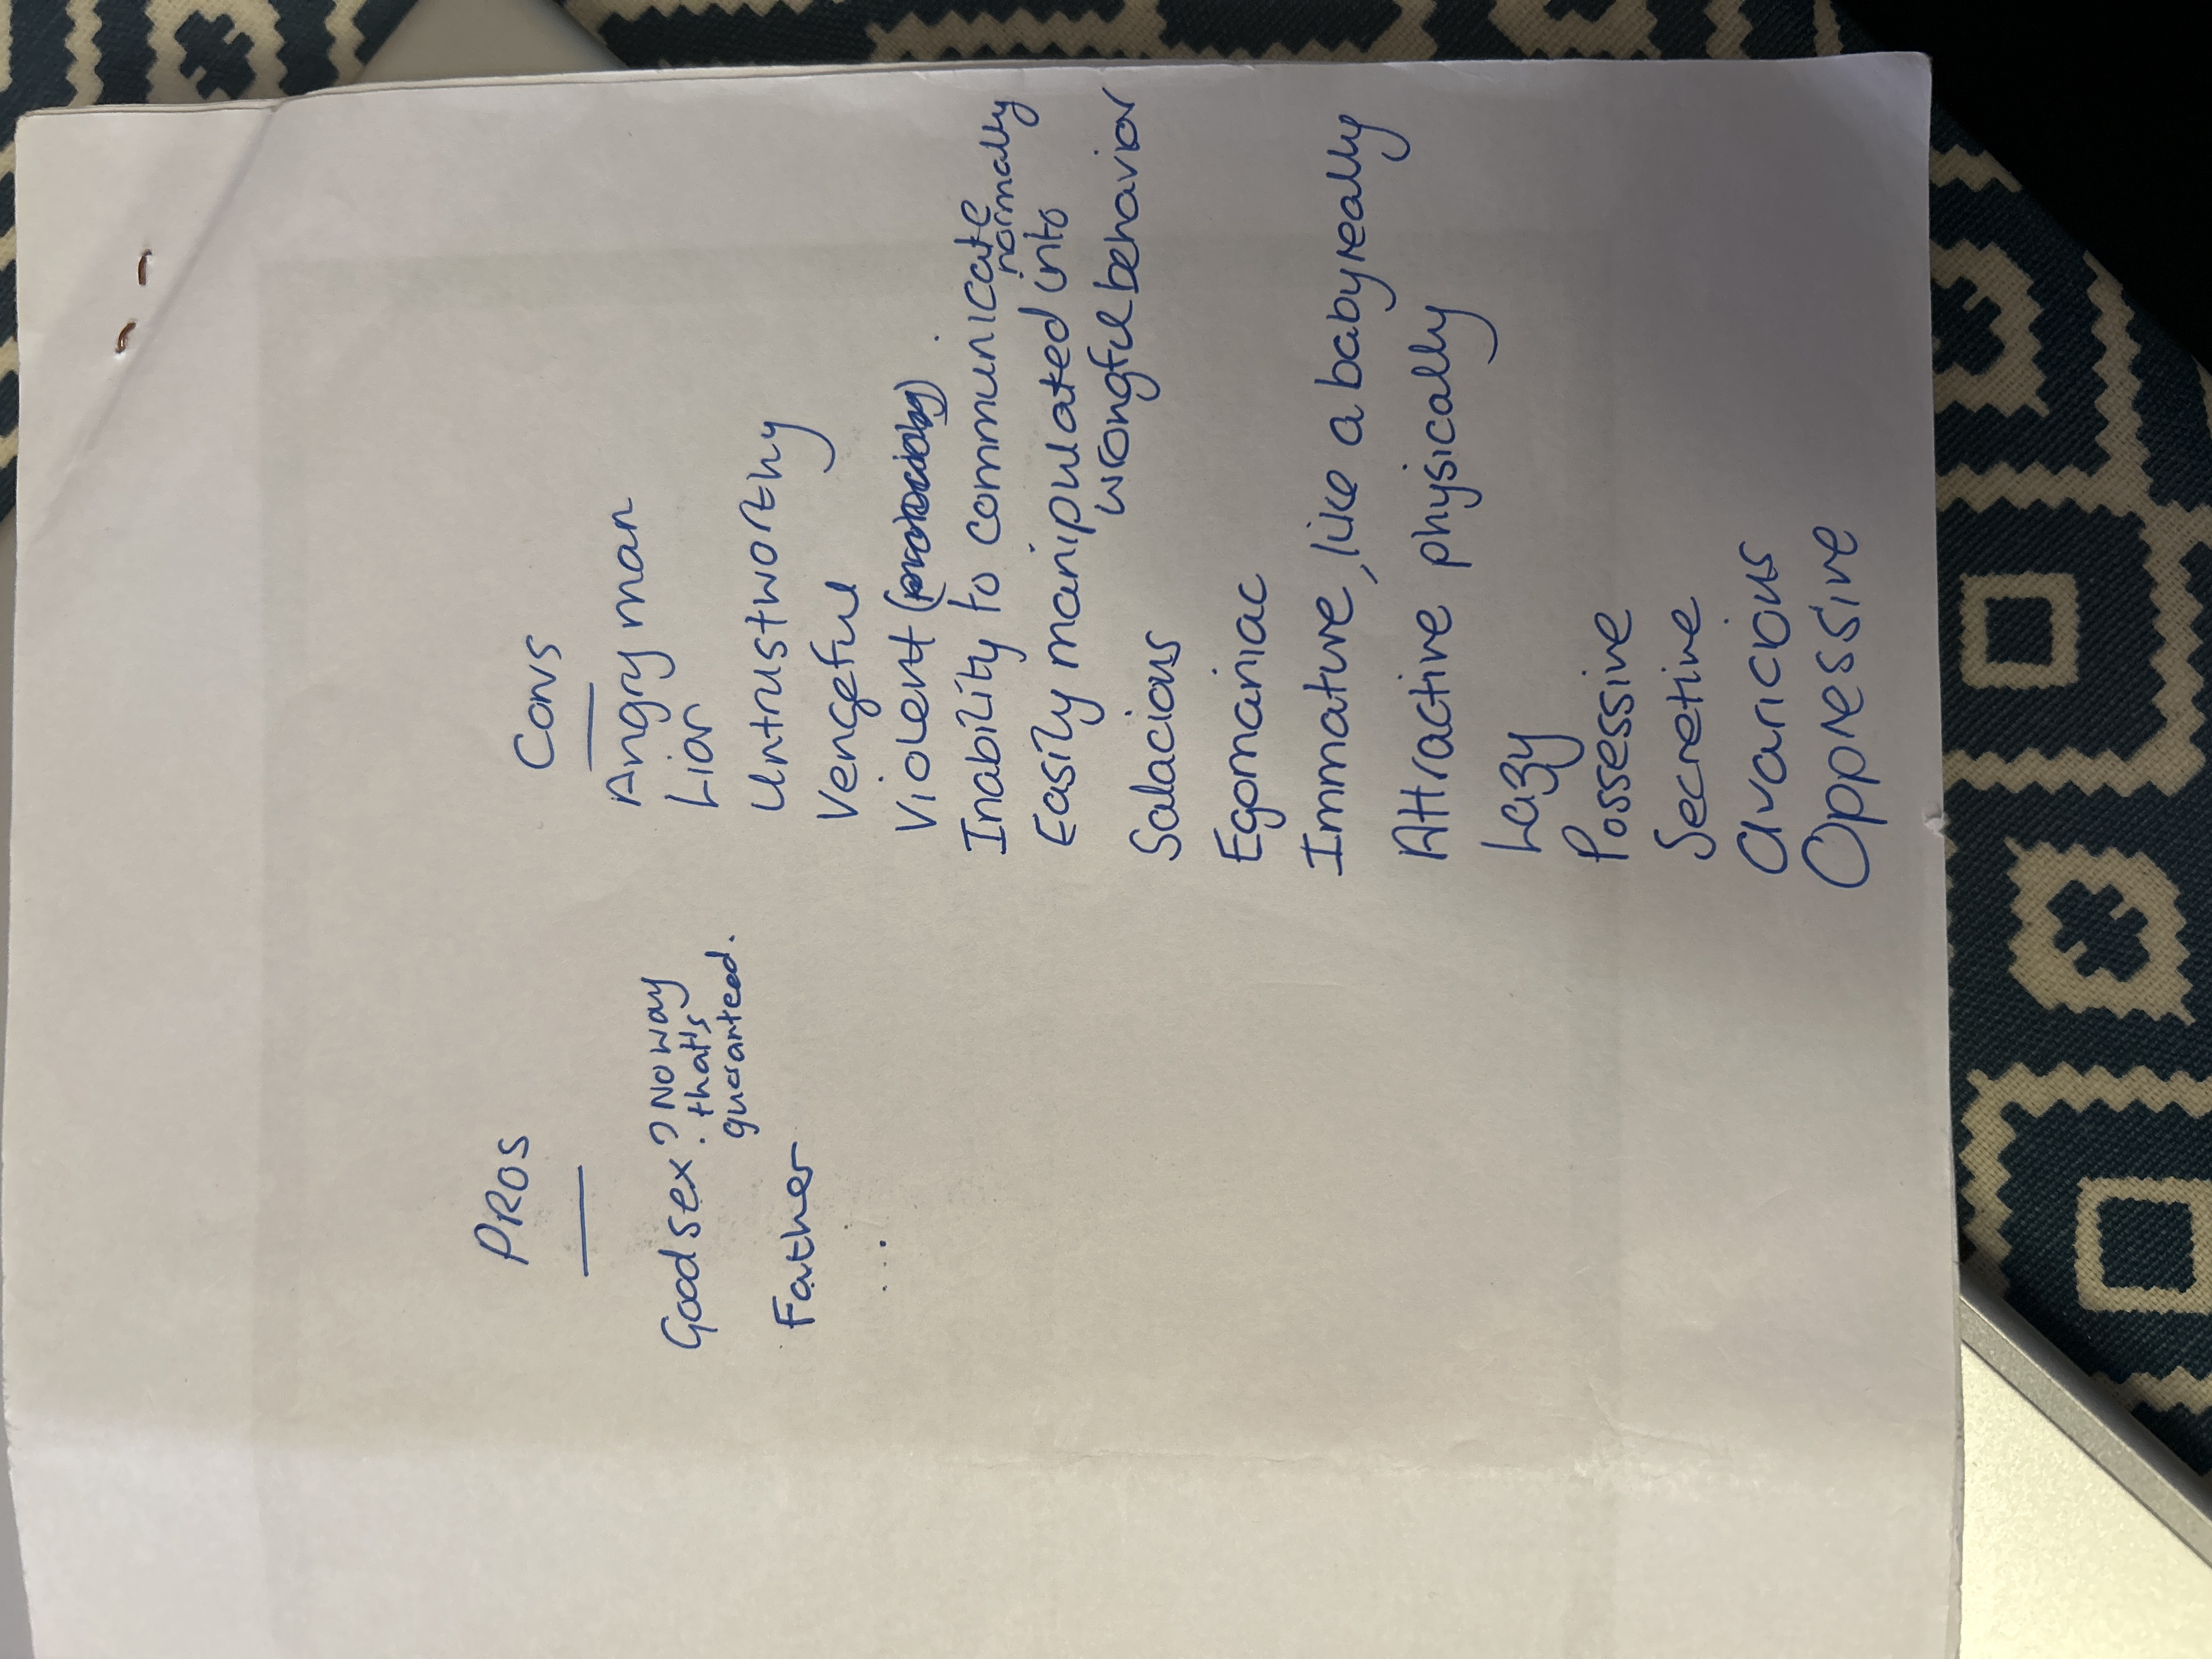 PROS
Good sex? No way
that's
guaranteed.
Father
...
Cons
Angry man
Liar
Untrustworthy
Vengeful
Violent
Inability to communicate
normally
Easily manipulated into
wrongful behavior
Salacious
Egomaniac
Immature, like a baby really
Attractive physically
Lazy
Possessive
Secretive
avaricious
Oppressive